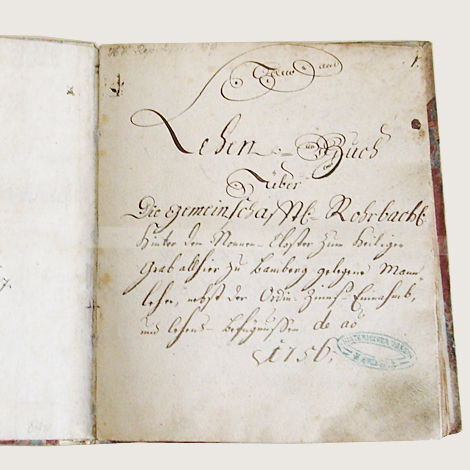 Lehen - Buch
Über
Die Gemeinschafftl. Rohrbachl.
hinter dem Nonnen-Closter zum Heiligen
Grab allhier zu Bamberg gelegene Mann
lehen, nebst der Ordin. Zinnß-Einnahmb,
und lehens-befugnussen de aō
1756.